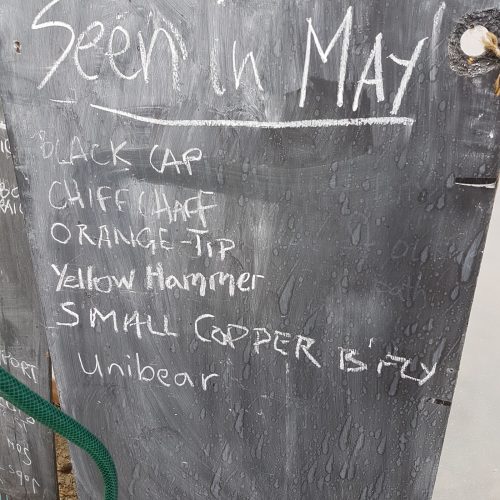 Seen in MAY
BLACK CAP
CHIFFCHAFF
ORANGE-TIP
Yellow Hammer
SMALL COPPER B'FLY
Unibear